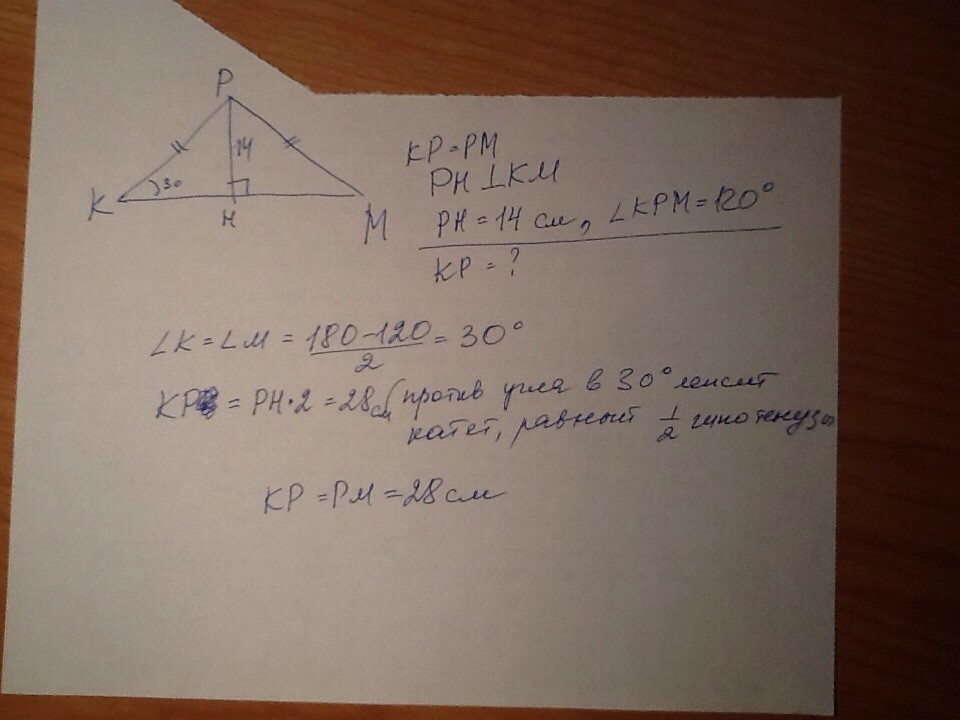 P
14
30
K
H
M
KP=PM
PH⊥KM
PH=14 см, ∠KPM=120°
KP = ?
∠K=∠M = \frac{180-120}{2} = 30°
KP = PH·2 = 28см (против угла в 30° лежит
катет, равный \frac{1}{2} гипотенузы
KP = PM = 28 см